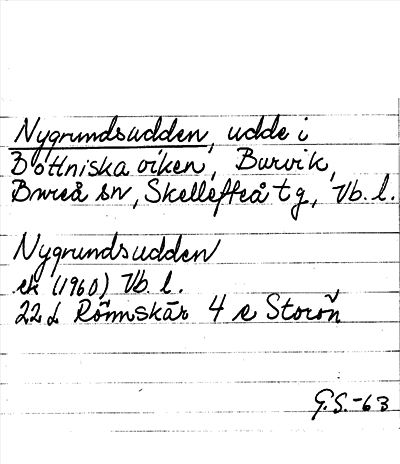 Nygrundsudden, udde i
Bottniska viken, Burvik,
Bureå sn, Skellefteå tg, Vb. l.
Nygrundsudden
ek (1960) Vb. l.
22 L Rönnskär 4 e Storön
G.S.-63